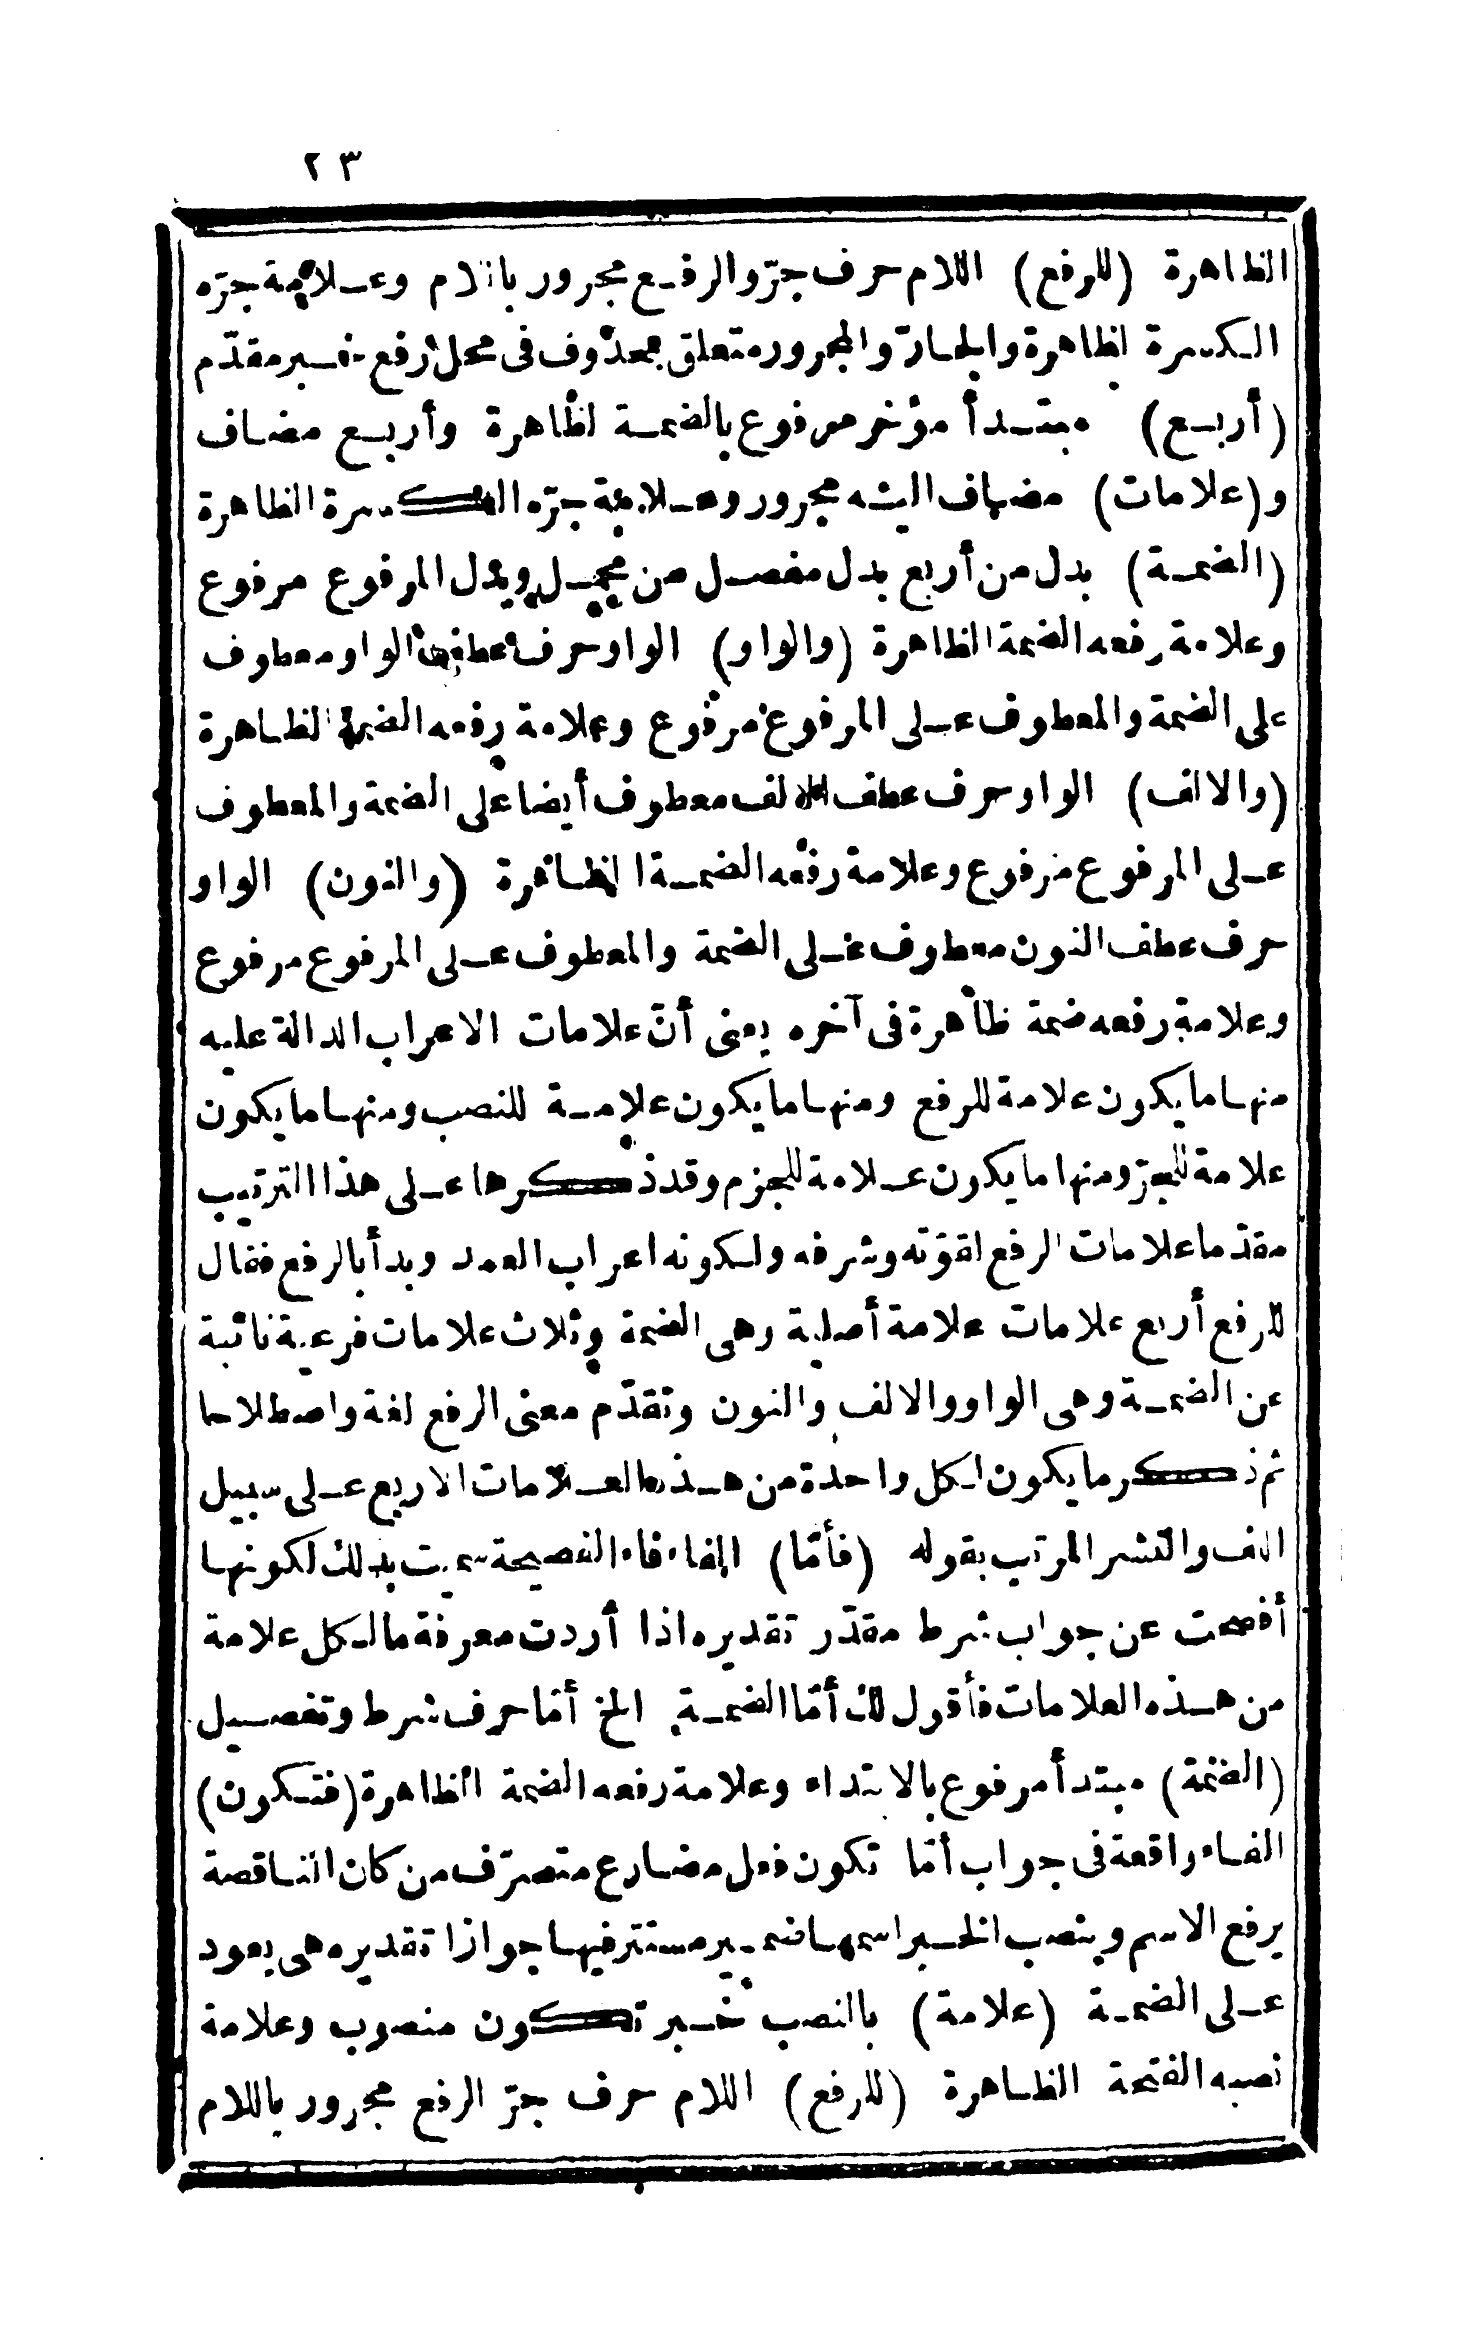 ٢٣
الظاهرة (للرفع) اللام حرف جرّ والرفع مجرور باللام وعلامة جرّه
الكسرة الظاهرة والجارّ والمجرور متعلق بمحذوف فى محل رفع خبر مقدّم
(أربع) مبتدأ مؤخر مرفوع بالضمة الظاهرة وأربع مضاف
و(علامات) مضاف اليه مجرور وعلامة جرّه الكسرة الظاهرة
(الضمة) بدل من أربع بدل مفصل من مجمل وبدل المرفوع مرفوع
وعلامة رفعه الضمة الظاهرة (والواو) الواو حرف عطف الواو معطوف
على الضمة والمعطوف على المرفوع مرفوع وعلامة رفعه الضمة الظاهرة
(والالف) الواو حرف عطف الالف معطوف أيضا على الضمة والمعطوف
على المرفوع مرفوع وعلامة رفعه الضمة الظاهرة (والنون) الواو
حرف عطف النون معطوف على الضمة والمعطوف على المرفوع مرفوع
وعلامة رفعه ضمة ظاهرة فى آخره يعنى أنّ علامات الاعراب الدالة عليه
منها ما يكون علامة للرفع ومنها ما يكون علامة للنصب ومنها ما يكون
علامة للجرّ ومنها ما يكون علامة للجزم وقد ذكرها على هذا الترتيب
مقدّما علامات الرفع لقوّته وشرفه ولكونه اعراب العمد وبدأ بالرفع فقال
للرفع أربع علامات علامة أصلية وهى الضمة وثلاث علامات فرعية نائبة
عن الضمة وهى الواو والالف والنون وتقدّم معنى الرفع لغة واصطلاحا
ثم ذكر ما يكون لكل واحدة من هذه العلامات الاربع على سبيل
اللف والنشر المرتب بقوله (فأمّا) الفاء فاء الفصيحة سميت بذلك لكونها
أفصحت عن جواب شرط مقدّر تقديره اذا أردت معرفة ما لكل علامة
من هذه العلامات فأقول لك أمّا الضمة الخ أمّا حرف شرط وتفصيل
(الضمّة) مبتدأ مرفوع بالابتداء وعلامة رفعه الضمة الظاهرة (فتكون)
الفاء واقعة فى جواب أمّا تكون فعل مضارع متصرّف من كان الناقصة
يرفع الاسم وينصب الخبر اسمها ضمير مستتر فيها جوازا تقديره هى يعود
على الضمة (علامة) بالنصب خبر تكون منصوب وعلامة
نصبه الفتحة الظاهرة (للرفع) اللام حرف جرّ الرفع مجرور باللام